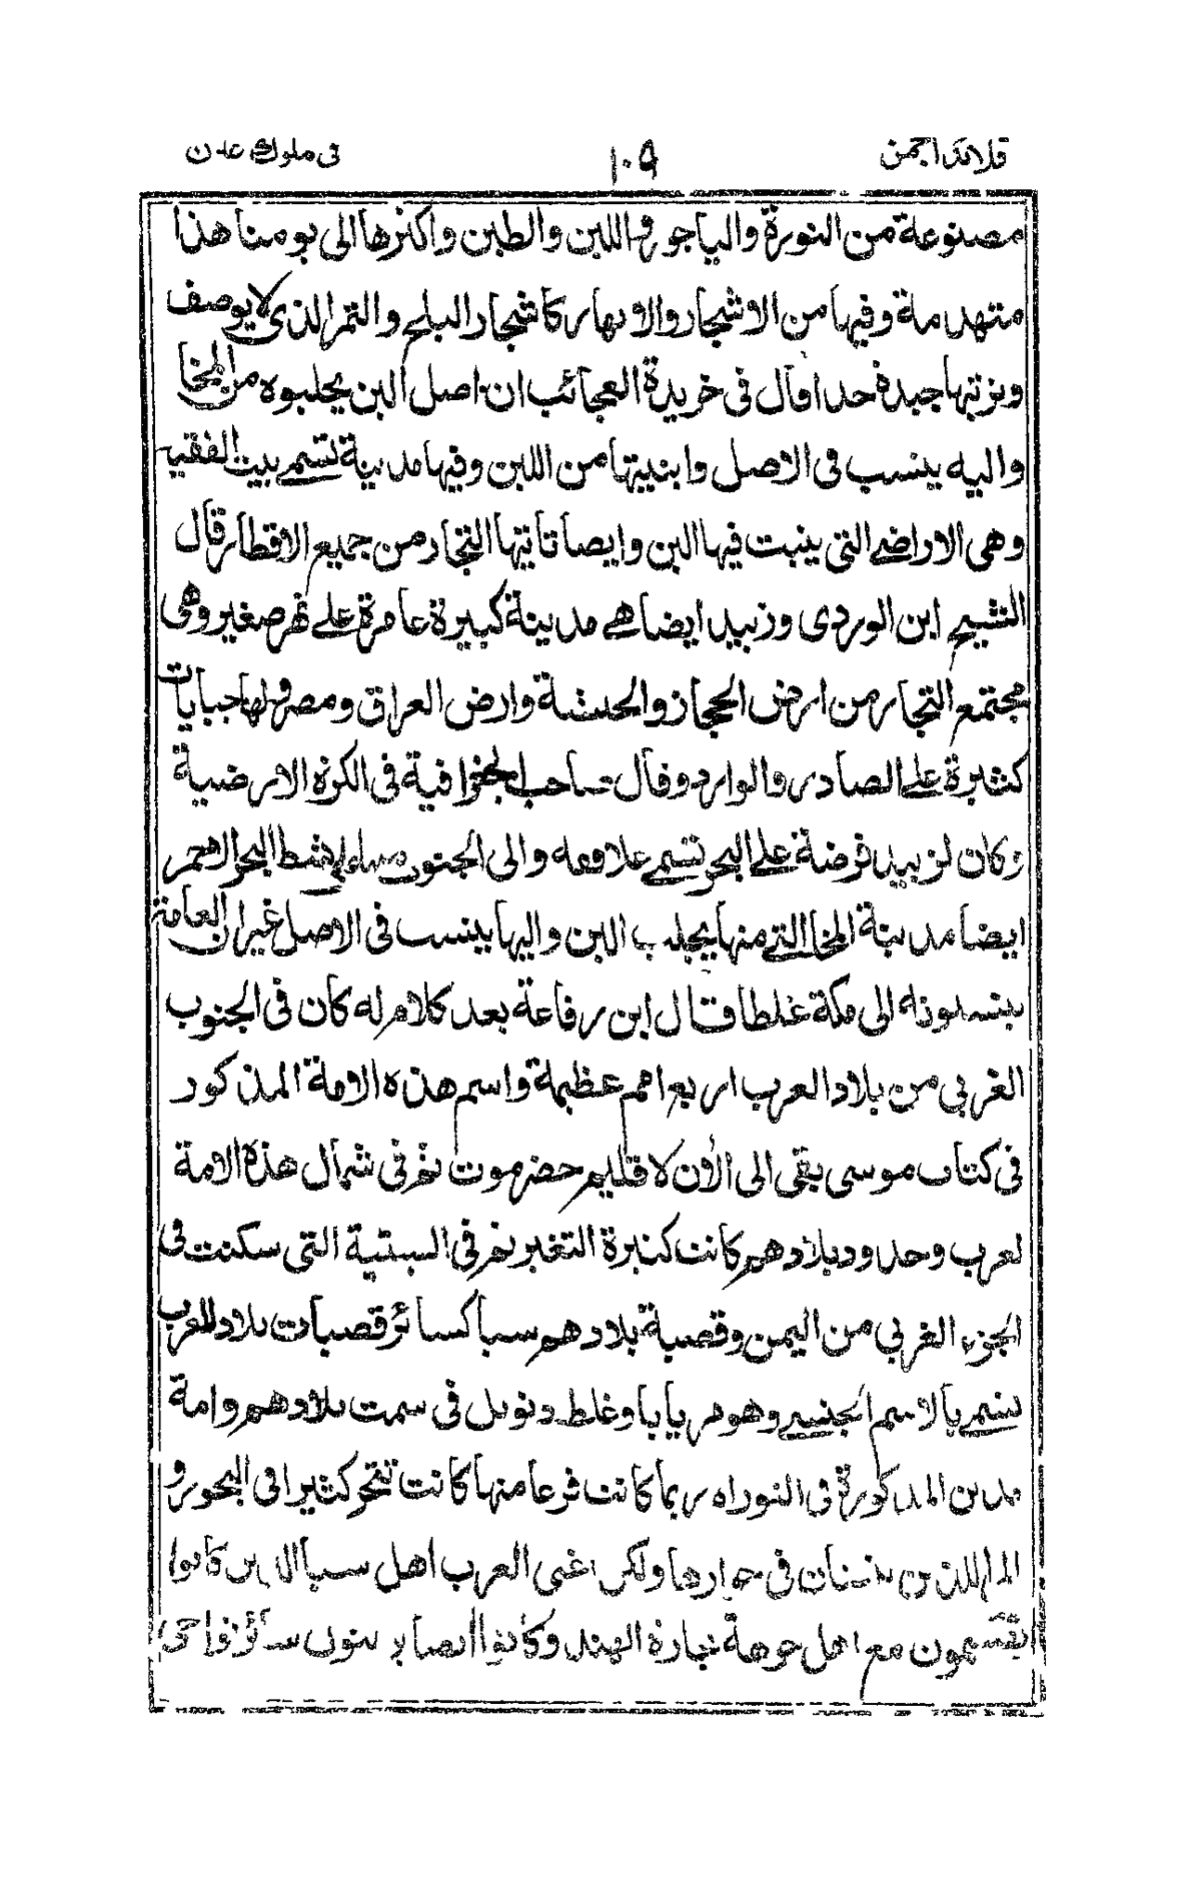 قلائد الجمن ١٠٩ فى ملوك عدن
مصنوعة من النورة والياجور واللبن والطين واكثرها الى يومنا هذا
متهدمة وفيها من الاشجار والانهار كاشجار البلح والتمر الذى لا يوصف
وتربتها جيدة جدا قال فى خريدة العجائب ان اصل البن يجلبوه من المخا
واليه ينسب فى الاصل وابنيتها من اللبن وفيها مدينة تسمى بيت الفقيه
وهى الاراضى التى ينبت فيها البن وايضا تاتيها التجار من جميع الاقطار قال
الشيخ ابن الوردى وزبيد ايضا هى مدينة كبيرة عامرة على نهر صغير وهى
مجتمع التجار من ارض الحجاز والحبشة وارض العراق ومصر ولها جبايات
كثيرة على الصادر والوارد وقال صاحب الجغرافية فى الكرة الارضية
وكان لزبيد فرضة على البحر تسمى علافقه والى الجنوب شط البحر الاحمر
ايضا مدينة المخا التى منها يجلب البن واليها ينسب فى الاصل غير ان العامة
ينسبونه الى مكة غلطا قال ابن رفاعة بعد كلام له كان فى الجنوب
الغربى من بلاد العرب اربع امم عظيمة واسم هذه الامة المذكور
فى كتاب موسى بقى الى الأن لاقليم حضرموت ثم فى شمال هذه الامة
لعرب وحدود بلادهم كانت كثيرة التغير ثم فى السبئية التى سكنت فى
الجزء الغربى من اليمن وقصبة بلادهم سبا كسائر قصبات بلاد العرب
تسمى بالاسم الجنسى وهو مريابا وغلط فى سمت بلادهم وامة
مدين المذكورة فى التوراه ربما كانت فرعا منها كانت تتجر كثيرا فى البخور و
فى جوارها ولكن اغنى العرب اهل سبا الذين كانوا
يقتسمون مع اهل جرهة تجارة الهند وكانوا ايضا سائر نواحى